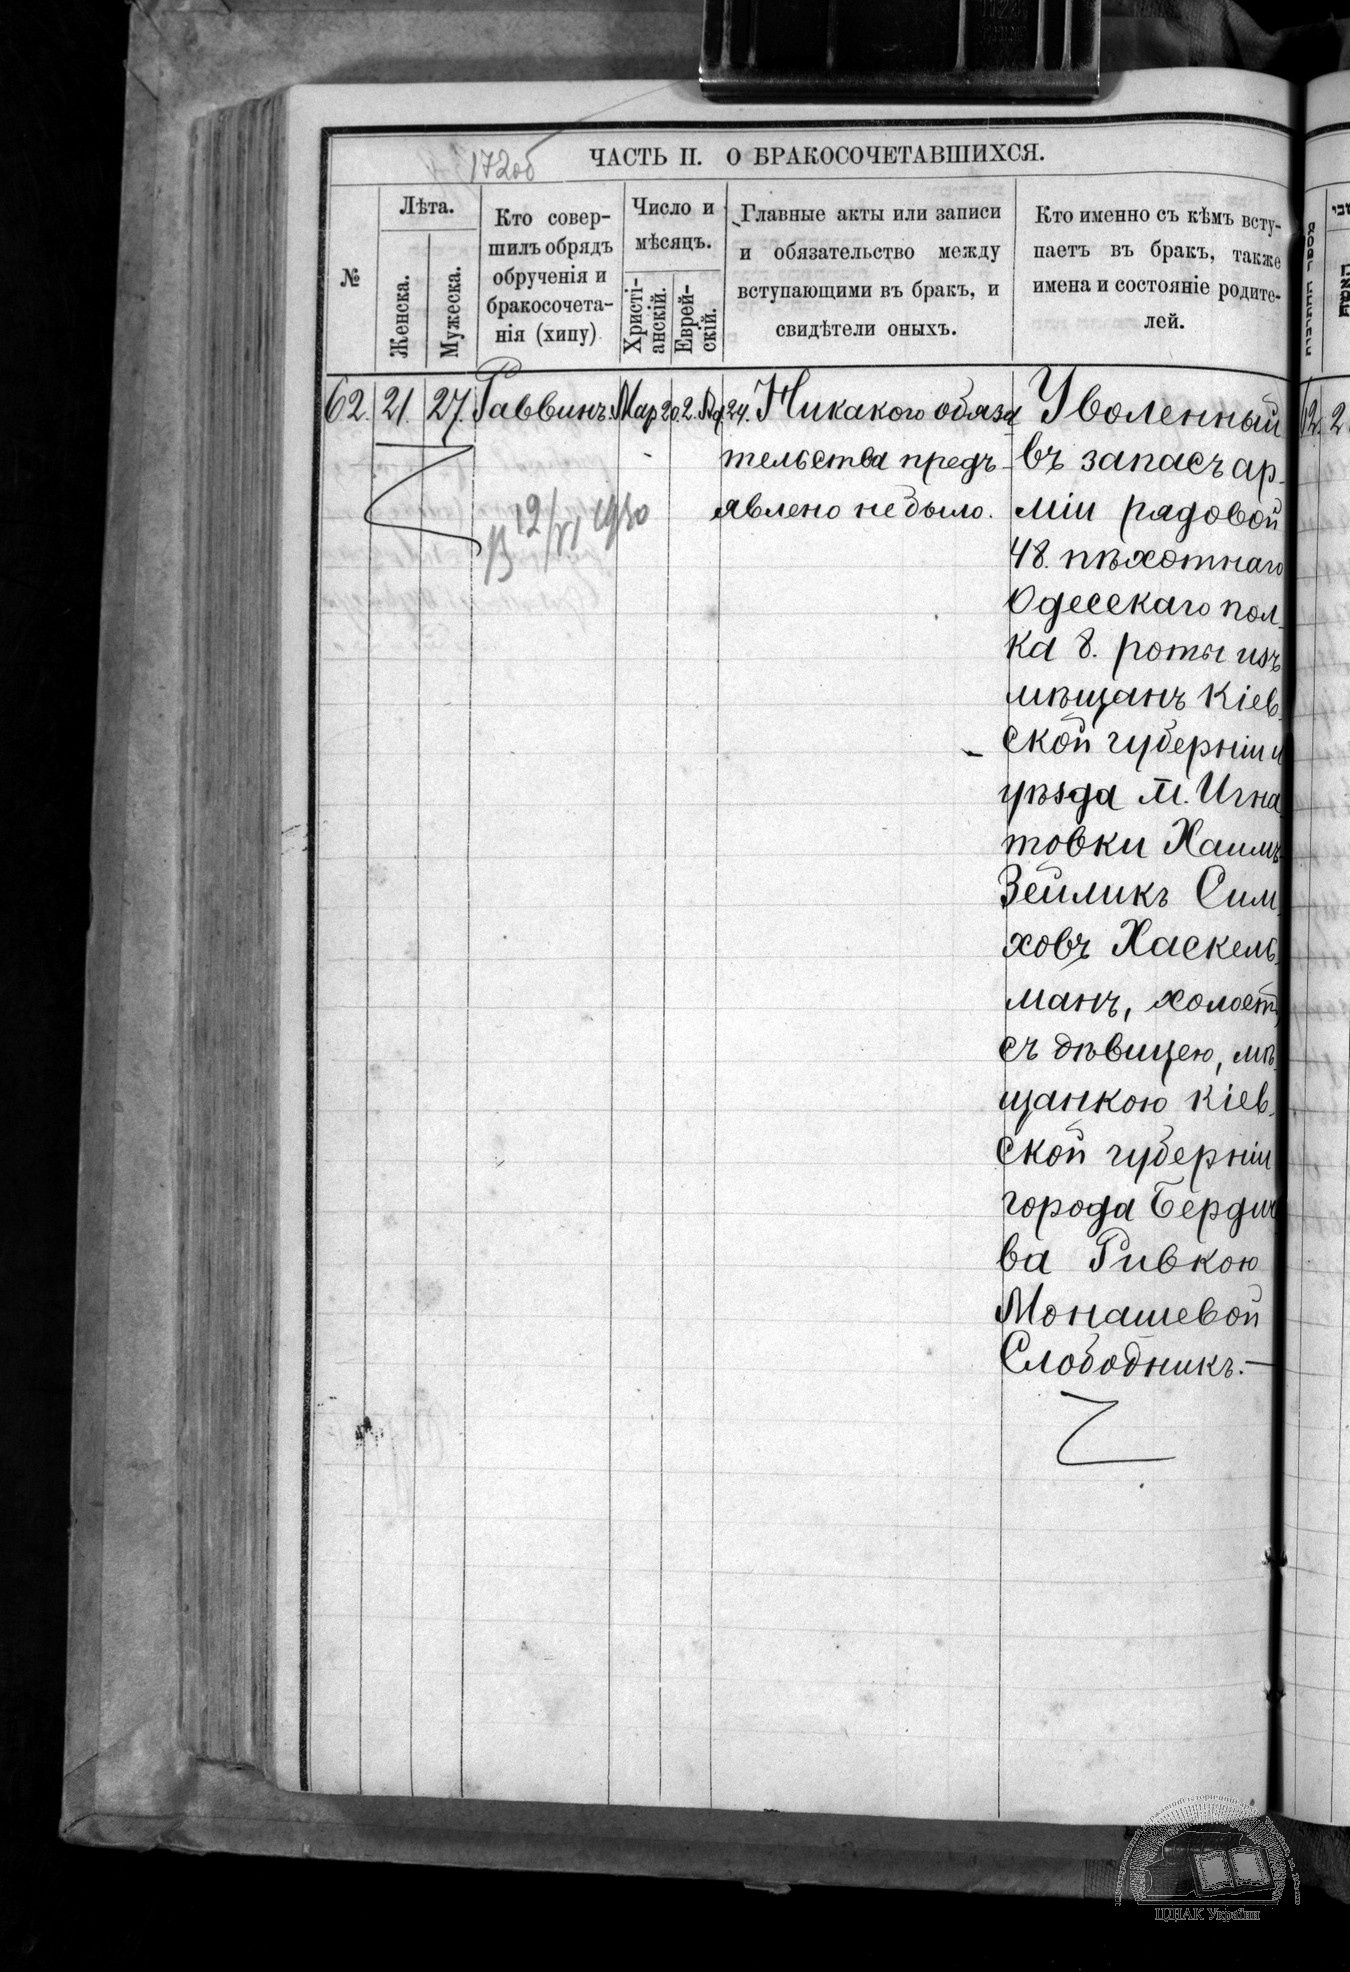 172об
ЧАСТЬ II. О БРАКОСОЧЕТАВШИХСЯ.
№
Лѣта.
Женска.
Мужеска.
Кто совер-
шилъ обрядъ
обрученія и
бракосочета-
нія (хипу)
Число и
мѣсяцъ.
Христі-
анскій.
Еврей-
скій.
Главные акты или записи
и обязательство между
вступающими въ бракъ, и
свидѣтели оныхъ.
Кто именно съ кѣмъ всту-
паетъ въ бракъ, также
имена и состояніе родите-
лей.
62. 21. 27. Раввинъ. Мар 20. 2. 24. Никакого обяза
тельства предъ-
явлено не было.
12/VI 1930
Уволенный
въ запасъ ар-
міи рядовой
48. пѣхотнаго
Одесскаго пол-
ка 8. роты изъ
мѣщанъ Кіев-
ской губерніи и
уѣзда м. Игна
товки Хаимъ
Зейликъ Сим-
ховъ Хаскель-
манъ, холост,
съ дѣвицею, мѣ-
щанкою Кіев-
ской губерніи
города Бердич
ва Ривкою
Монашевой
Слободникъ.—
ЦДІАК України